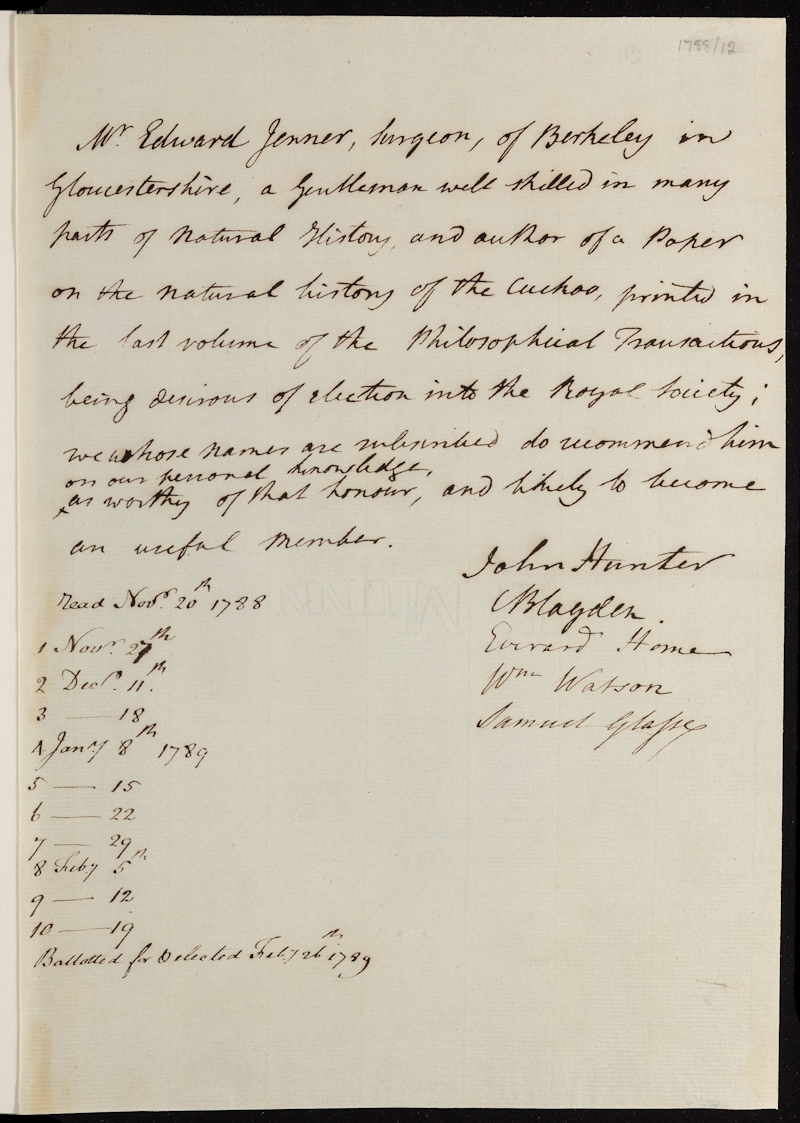 1788/12
Mr Edward Jenner, Surgeon, of Berkeley in
Gloucestershire, a Gentleman well skilled in many
parts of Natural History, and author of a Paper
on the natural history of the Cuckoo, printed in
the last volume of the Philosophical Transactions,
being desirous of election into the Royal Society;
we whose names are subscribed do recommend him
on our personal knowledge,
as worthy of that honour, and likely to become
an useful Member.
John Hunter
CBlagden.
Everard Home
Wm Watson
Samuel Glasse
Read Novr. 20th 1788
1 Novr. 27th
2 Decr. 11.th
3 — 18
4 Jany 8th 1789
5 — 15
6 — 22
7 — 29
8 Feby 5th
9 — 12
10 — 19
Ballotted for & elected Feby 26th 1789